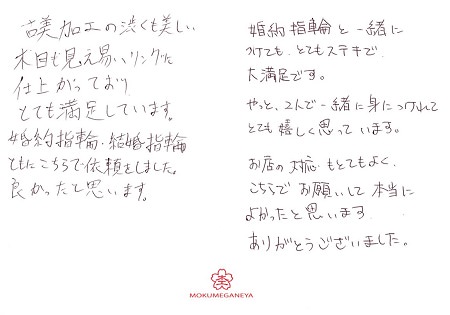 古美加工の渋くも美しい
木目も見え易いリングに
仕上がっており
とても満足しています。
婚約指輪・結婚指輪
ともにこちらで依頼をしました。
良かったと思います。
婚約指輪と一緒に
つけても、とてもステキで
大満足です。
やっと、2人で一緒に身につけれて
とても嬉しく思っています。
お店の対応もとてもよく、
こちらでお願いして本当に
よかったと思います
ありがとうございました。
MOKUMEGANEYA